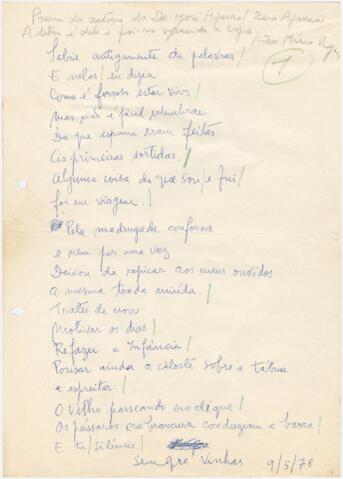 Poema da autoria do Dr. José Afonso / Zeca Afonso
A letra é dele e foi-me a cópia
1
Sabia antigamente de palavras /
E nelas / eu dizia
Como é forçoso estar vivo /
Mas não é fácil relembrar
De que espuma eram feitas
As primeiras sortidas. /
Alguma coisa do que sou / e fui /
foi em viagem. /
Pela madrugada conforme
e nem por uma vez
Deixou de rapicar aos meus ouvidos
a mesma toada miúda. /
Tratei de novo
Motivar os dias /
Refazer a Infância /
Pousar ainda a celeste sobre a tábua
e espreitar: /
O Velho passeando no dique /
Os pássaros cabranceira conduziam a barca /
E tu / Silêncio /
Sempre Vinhas 9/5/78